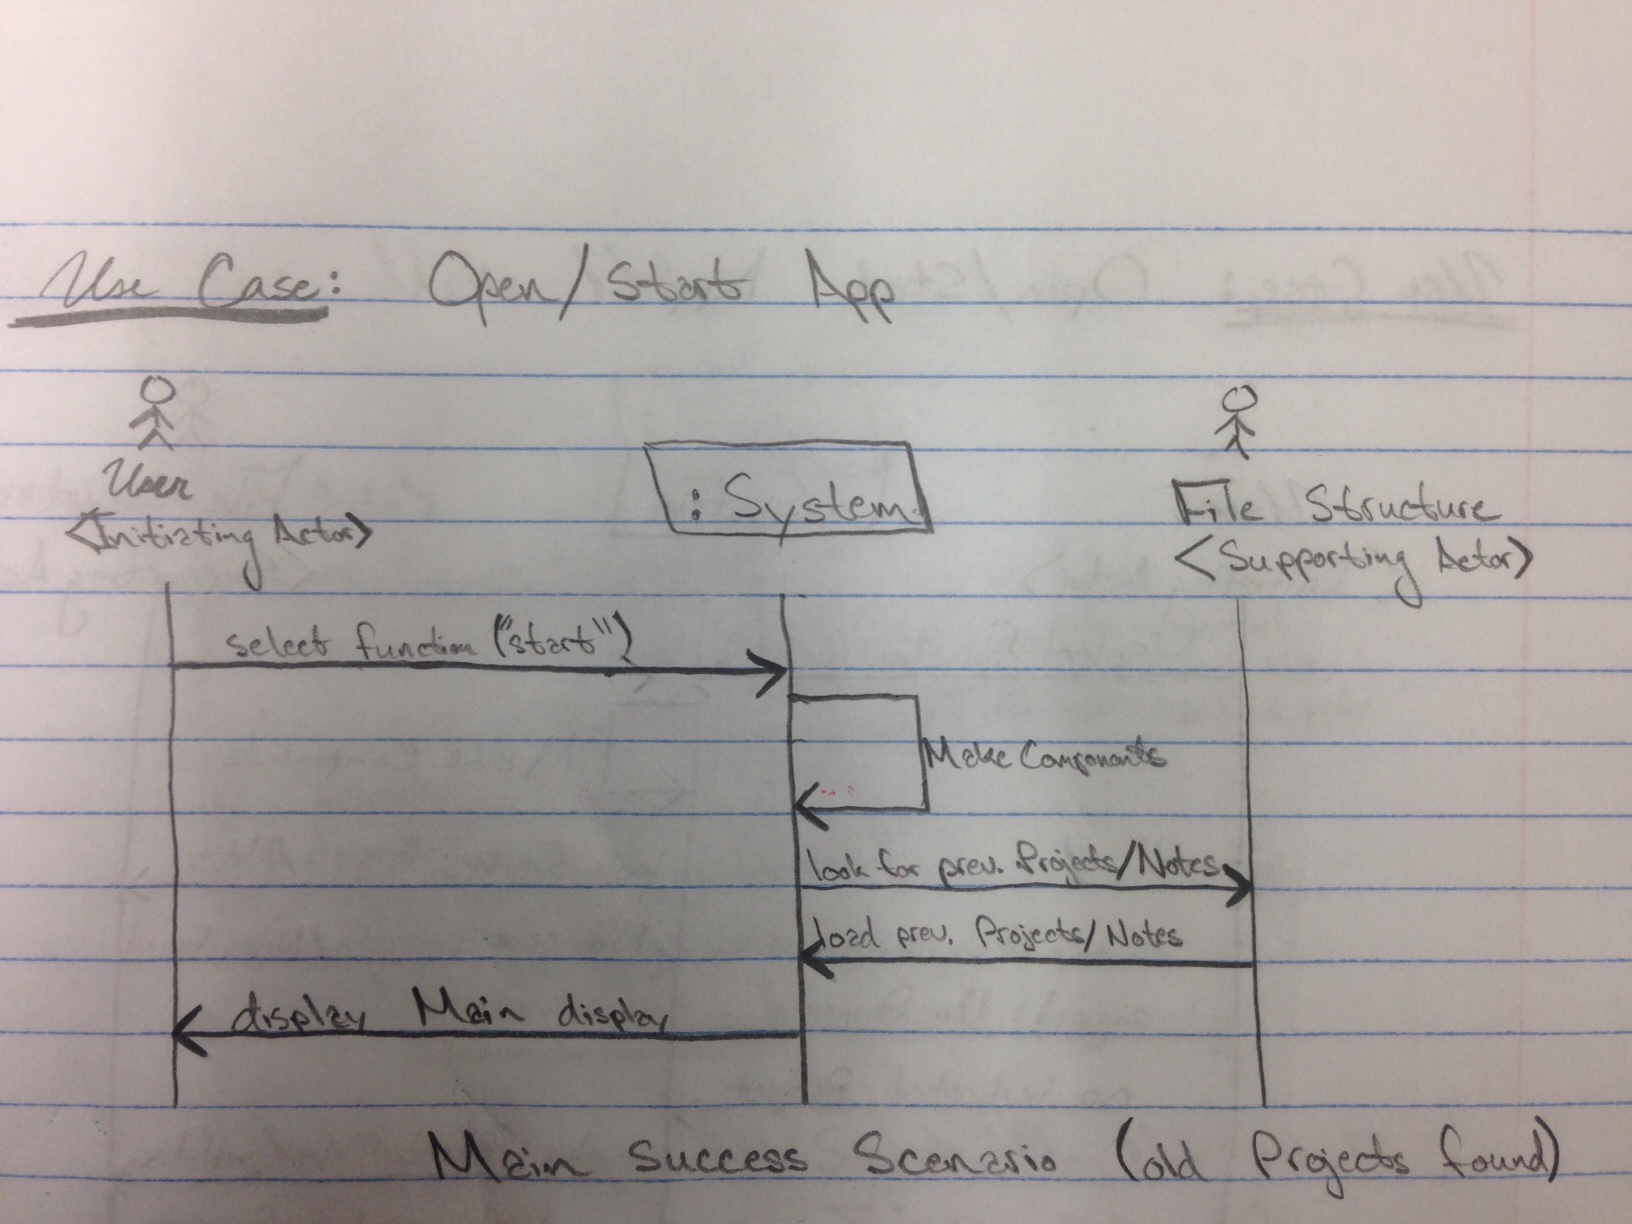 Use Case: Open/Start App
User
<Initiating Actor>
: System
File Structure
<Supporting Actor>
select function ("start")
Make Components
look for prev. Projects/Notes
load prev. Projects/Notes
display Main display
Main Success Scenario (old Projects found)